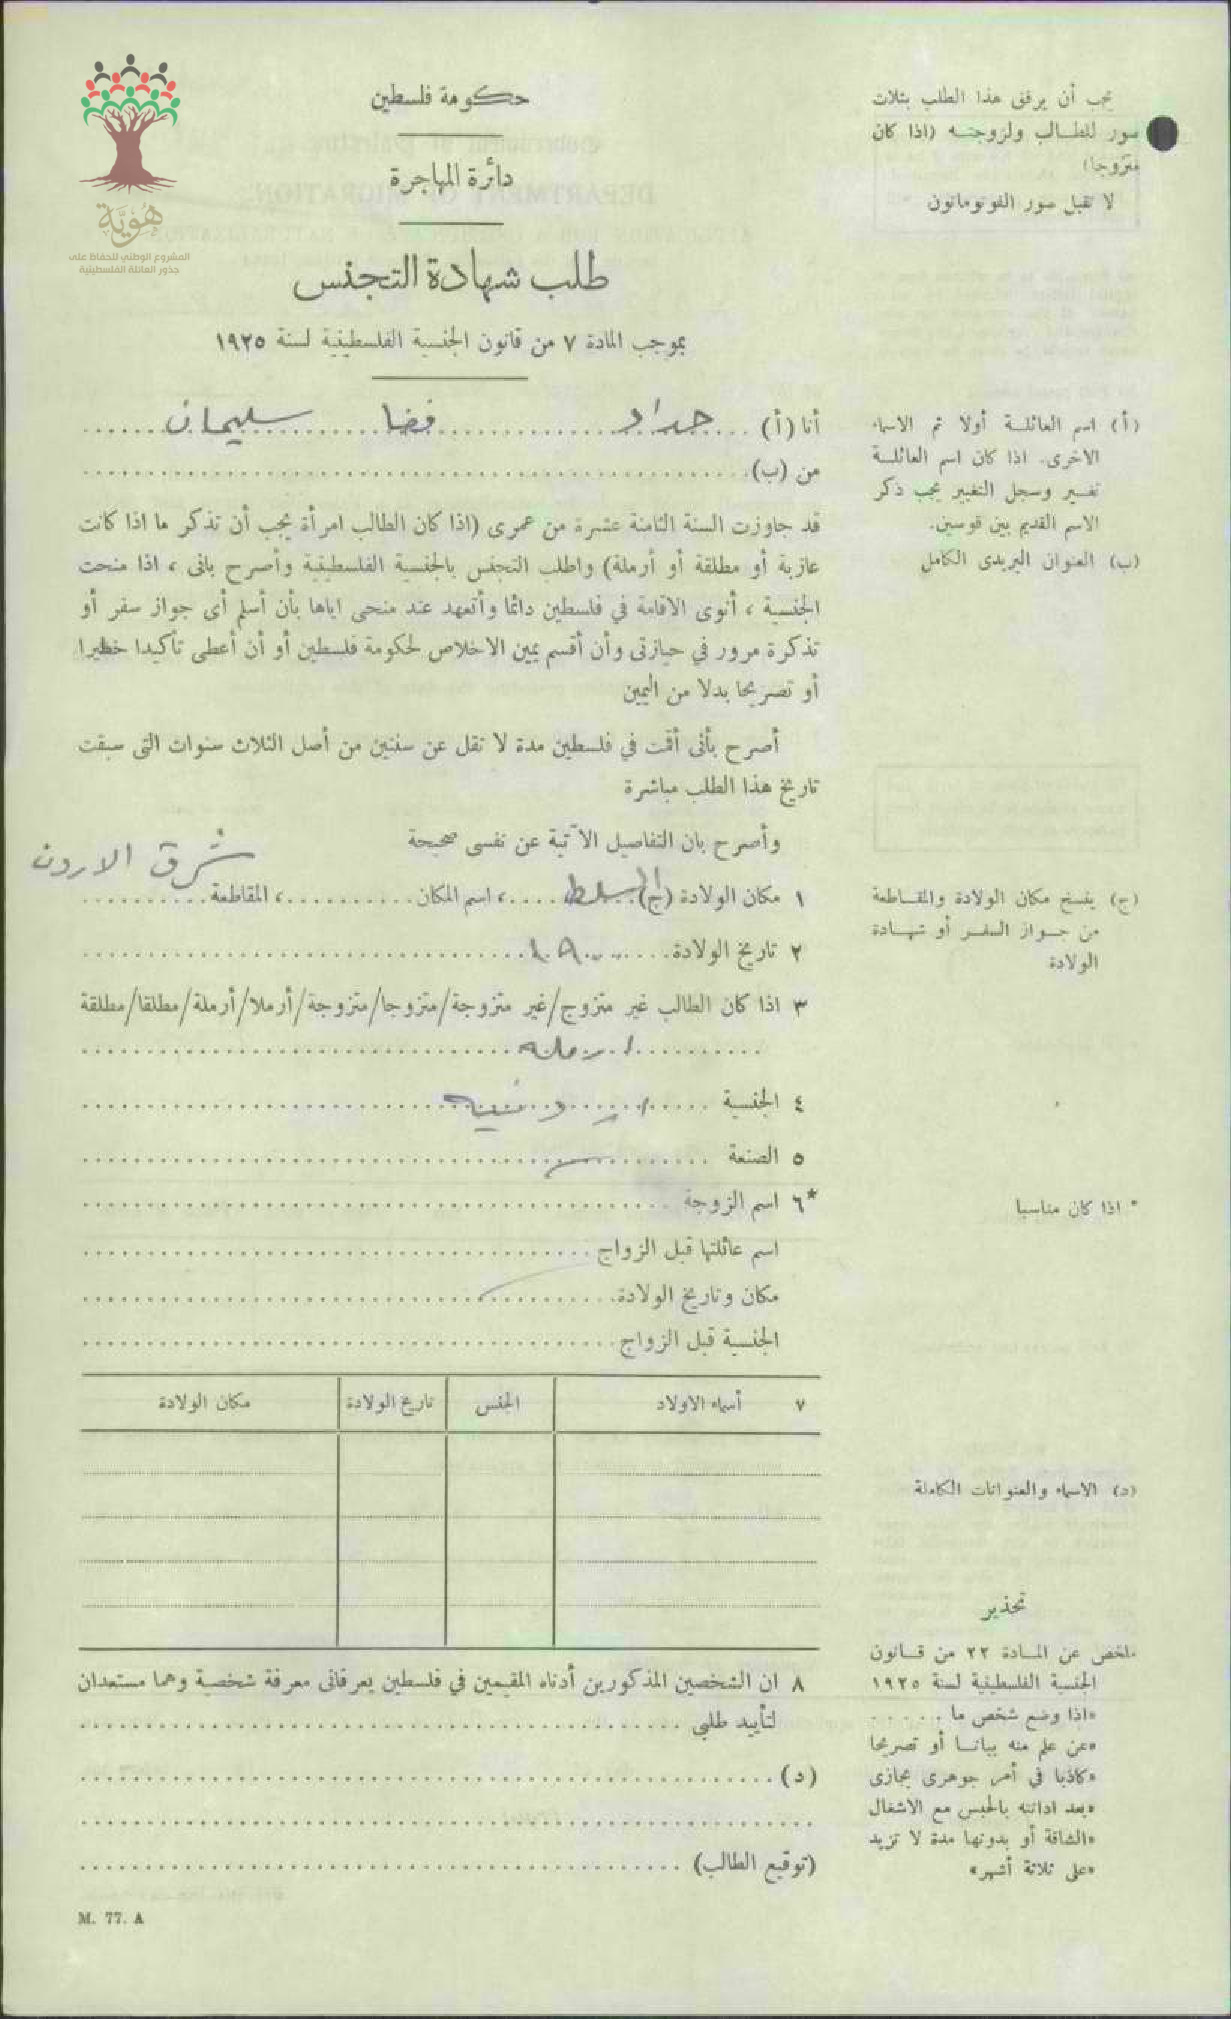 هُوِيَّة
المشروع الوطني للحفاظ على
جذور العائلة الفلسطينية
حكومة فلسطين
دائرة المهاجرة
طلب شهادة التجنس
بموجب المادة ٧ من قانون الجنسية الفلسطينية لسنة ١٩٢٥
يجب أن يرفق هذا الطلب بثلاث
صور للطالب ولزوجته (اذا كان
متزوجا)
لا تقبل صور الفوتوماتون
أنا (أ) حداد فضا سليمان
من (ب)
قد جاوزت السنة الثامنة عشرة من عمرى (اذا كان الطالب امرأة يجب أن تذكر ما اذا كانت
عازبة أو مطلقة أو أرملة) واطلب التجنس بالجنسية الفلسطينية وأصرح بانى ، اذا منحت
الجنسية ، أنوى الاقامة في فلسطين دائما وأتعهد عند منحى اياها بأن أسلم أى جواز سفر أو
تذكرة مرور في حيازتى وأن أقسم يمين الاخلاص لحكومة فلسطين أو أن أعطى تأكيدا خطيرا
أو تصريحا بدلا من اليمين
أصرح بأنى أقمت في فلسطين مدة لا تقل عن سنتين من أصل الثلاث سنوات التى سبقت
تاريخ هذا الطلب مباشرة
وأصرح بان التفاصيل الآتية عن نفسى صحيحة
١ مكان الولادة (ج) السلط ، اسم المكان ، المقاطعة شرق الاردن
٢ تاريخ الولادة ١٩٠٠
٣ اذا كان الطالب غير متزوج/غير متزوجة/متزوجا/متزوجة/أرملا/أرملة/مطلقا/مطلقة
ارمله
٤ الجنسية اردنيه
٥ الصنعة
*٦ اسم الزوجة
اسم عائلتها قبل الزواج
مكان وتاريخ الولادة
الجنسية قبل الزواج
٧ أسماء الاولاد الجنس تاريخ الولادة مكان الولادة
٨ ان الشخصين المذكورين أدناه المقيمين في فلسطين يعرفانى معرفة شخصية وهما مستعدان
لتأييد طلبي
(د)
(توقيع الطالب)
M. 77. A
(أ) اسم العائلة أولا ثم الاسماء
الاخرى. اذا كان اسم العائلة
تغير وسجل التغيير يجب ذكر
الاسم القديم بين قوسين.
(ب) العنوان البريدى الكامل
(ج) ينسخ مكان الولادة والمقاطعة
من جواز السفر أو شهادة
الولادة
* اذا كان مناسبا
(د) الاسماء والعنوانات الكاملة
تحذير
ملخص عن المادة ٢٢ من قانون
الجنسية الفلسطينية لسنة ١٩٢٥
«اذا وضع شخص ما . . . . .
«عن علم منه بيانا أو تصريحا
«كاذبا في أمر جوهرى يجازى
«بعد ادانته بالحبس مع الاشغال
«الشاقة أو بدونها مدة لا تزيد
«على ثلاثة أشهر»